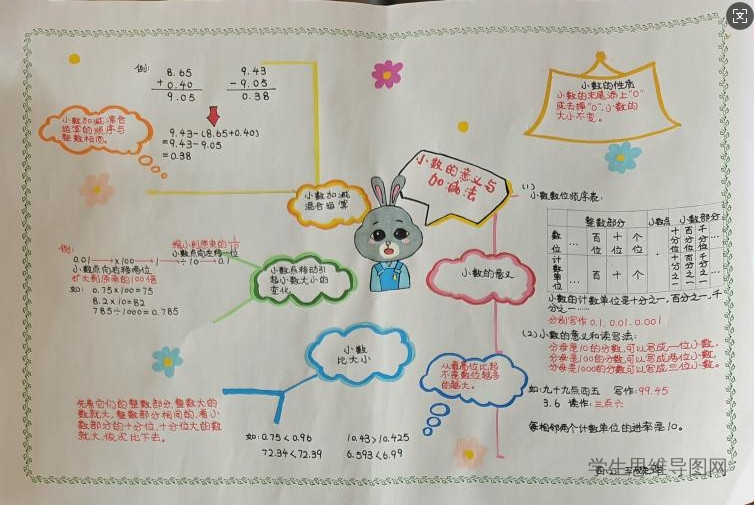 例:
8.65
+ 0.40
9.05
9.43
- 9.05
0.38
9.43-(8.65+0.40)
=9.43-9.05
=0.38
小数加减混合
运算的顺序与
整数相同。
小数加减
混合运算
小数的意义与
加减法
小数的性质
小数的末尾添上"0"
或去掉"0",小数的
大小不变。
(1)
小数数位顺序表:
整数部分
小数点
小数部分
数位
…
百位
十位
个位
·
十分位
百分位
千分位
…
计数单位
…
百
十
个
十分之一
百分之一
千分之一
…
小数的计数单位是十分之一,百分之一,千
分之一……
分别写作0.1, 0.01, 0.001
(2)小数的意义和读写法:
分母是10的分数,可以写成一位小数,
分母是100的分数,可以写成两位小数,
分母是1000的分数,可以写成三位小数。
如:九十九点四五 写作:99.45
3.6 读作:三点六
每相邻两个计数单位的进率是10。
小数的意义
例:
0.01 ×100 1
小数点向右移两位
扩大到原来的100倍
缩小到原来的1/10
小数点向左移一位
÷10 0.1
如: 0.75×100=75
8.2×10=82
785÷1000=0.785
小数点移动引
起小数大小的
变化
小数
比大小
从最高位比起
不是数位越多
的越大。
先看它们的整数部分,整数大的
数就大,整数部分相同的,看小
数部分的十分位,十分位大的数
就大,依次比下去。
如:0.75<0.96
10.43>10.425
72.34<72.39
6.593<6.99
学生思维导图网